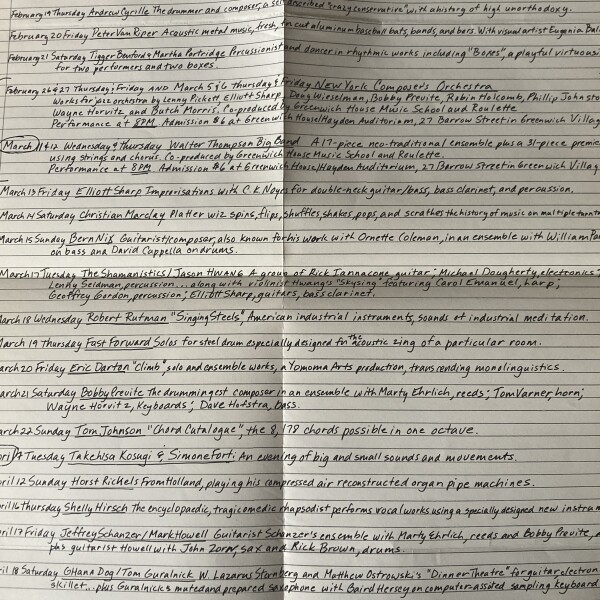 February 19 Thursday Andrew Cyrille The drummer and composer, a self described "crazy conservative" with a history of high unorthodoxy.
February 20 Friday Peter Van Riper Acoustic metal music, fresh, tin cut aluminum baseball bats, bands, and bars. With visual artist Eugenia Bal
February 21 Saturday Tigger Benford & Martha Partridge Percussionist and dancer in rhythmic works including "Boxes", a playful virtuosi
for two performers and two boxes.
February 26 & 27 Thursday & Friday AND March 5 & 6 thursday & Friday NEW York Composer's Orchestra
Works for jazz orchestra by Lenny Pickett, Elliott Sharp, Doug Wieselman, Bobby Previte, Robin Holcomb, Phillip Johnsto
Wayne Horvitz, and Butch Morris, Co-produced by Greenwich House Music School and Roulette.
Performance at 8PM. Admission $6 at Greenwich House/Hayden Auditorium, 27 Barrow Street in Greenwich Villag
March 11 & 12 Wednesday & Thursday Walter Thompson Big Band A 17-piece neo-traditional ensemble plus a 31-piece premie
using strings and chorus. Co-produced by Greenwich House Music School and Roulette.
Performance at 8PM Admission $6 at Greenwich House/Hayden Auditorium, 27 Barrow Street in Greenwich Villag
March 13 Friday Elliott Sharp Improvisations with C.K. Noyes for double-neck guitar/bass, bass clarinet, and percussion.
March 14 Saturday Christian Marclay Platter wiz spins, flips, shuffles, shakes, pops, and scrathes the history of music on multiple turnt
March 15 Sunday Bern Nix Guitarist/composer, also known for his work with Ornette Coleman, in an ensemble with William Pa
on bass and David Cappella on drums.
March 17 Tuesday The Shamanistics/Jason HWANG A group of Rick Iannacone, guitar; Michael Dougherty, electronics;
Lendy Seidman, percussion... along with violinist Hwang's "Skysing" featuring Carol Emanuel, harp;
Geoffrey Gordon, percussion; Elliott Sharp, guitars, bass clarinet.
March 18 Wednesday Robert Rutman "Singing Steels", American industrial instruments, sounds of industrial meditation.
March 19 Thursday Fast Forward Solos for steel drum especially designed for the acoustic zing of a particular room.
arch 20 Friday Eric Darton "Climb", solo and ensemble works, a Yomoma Arts production, transcending monolinguistics.
arch 21 Saturday Bobby Previte The drummingest composer in an ensemble with Marty Ehrlich, reeds; Tom Varner, horn;
Wayne Horvitz, keyboards; Dave Hofstra, bass.
arch 22 Sunday Tom Johnson "Chord Catalogue", the 8,178 chords possible in one octave.
pril 7 Tuesday Takehisa Kosugi & Simone Forti: An evening of big and small sounds and movements.
pril 12 Sunday Horst Rickels From Holland, playing his compressed air reconstructed organ pipe machines.
pril 16 thursday Shelly Hirsch The encyclopaedic, tragicomedic rhapsodist performs vocal works using a specially designed new instrum
pril 17 Friday Jeffrey Schanzer/Mark Howell Guitarist Schanzer's ensemble with Marty Ehrlich, reeds and Bobby Previte,
plus guitarist Howell with John Zorn, sax and Rick Brown, drums.
pril 18 Saturday GHana Dog/Tom Guralnick W. Lazarus Sternberg and Matthew Ostrowski's "Dinner Theatre" for guitar, electron
skillet... plus Guralnick's muted and prepared saxophone with Baird Hersey on computer-assisted sampling keyboard